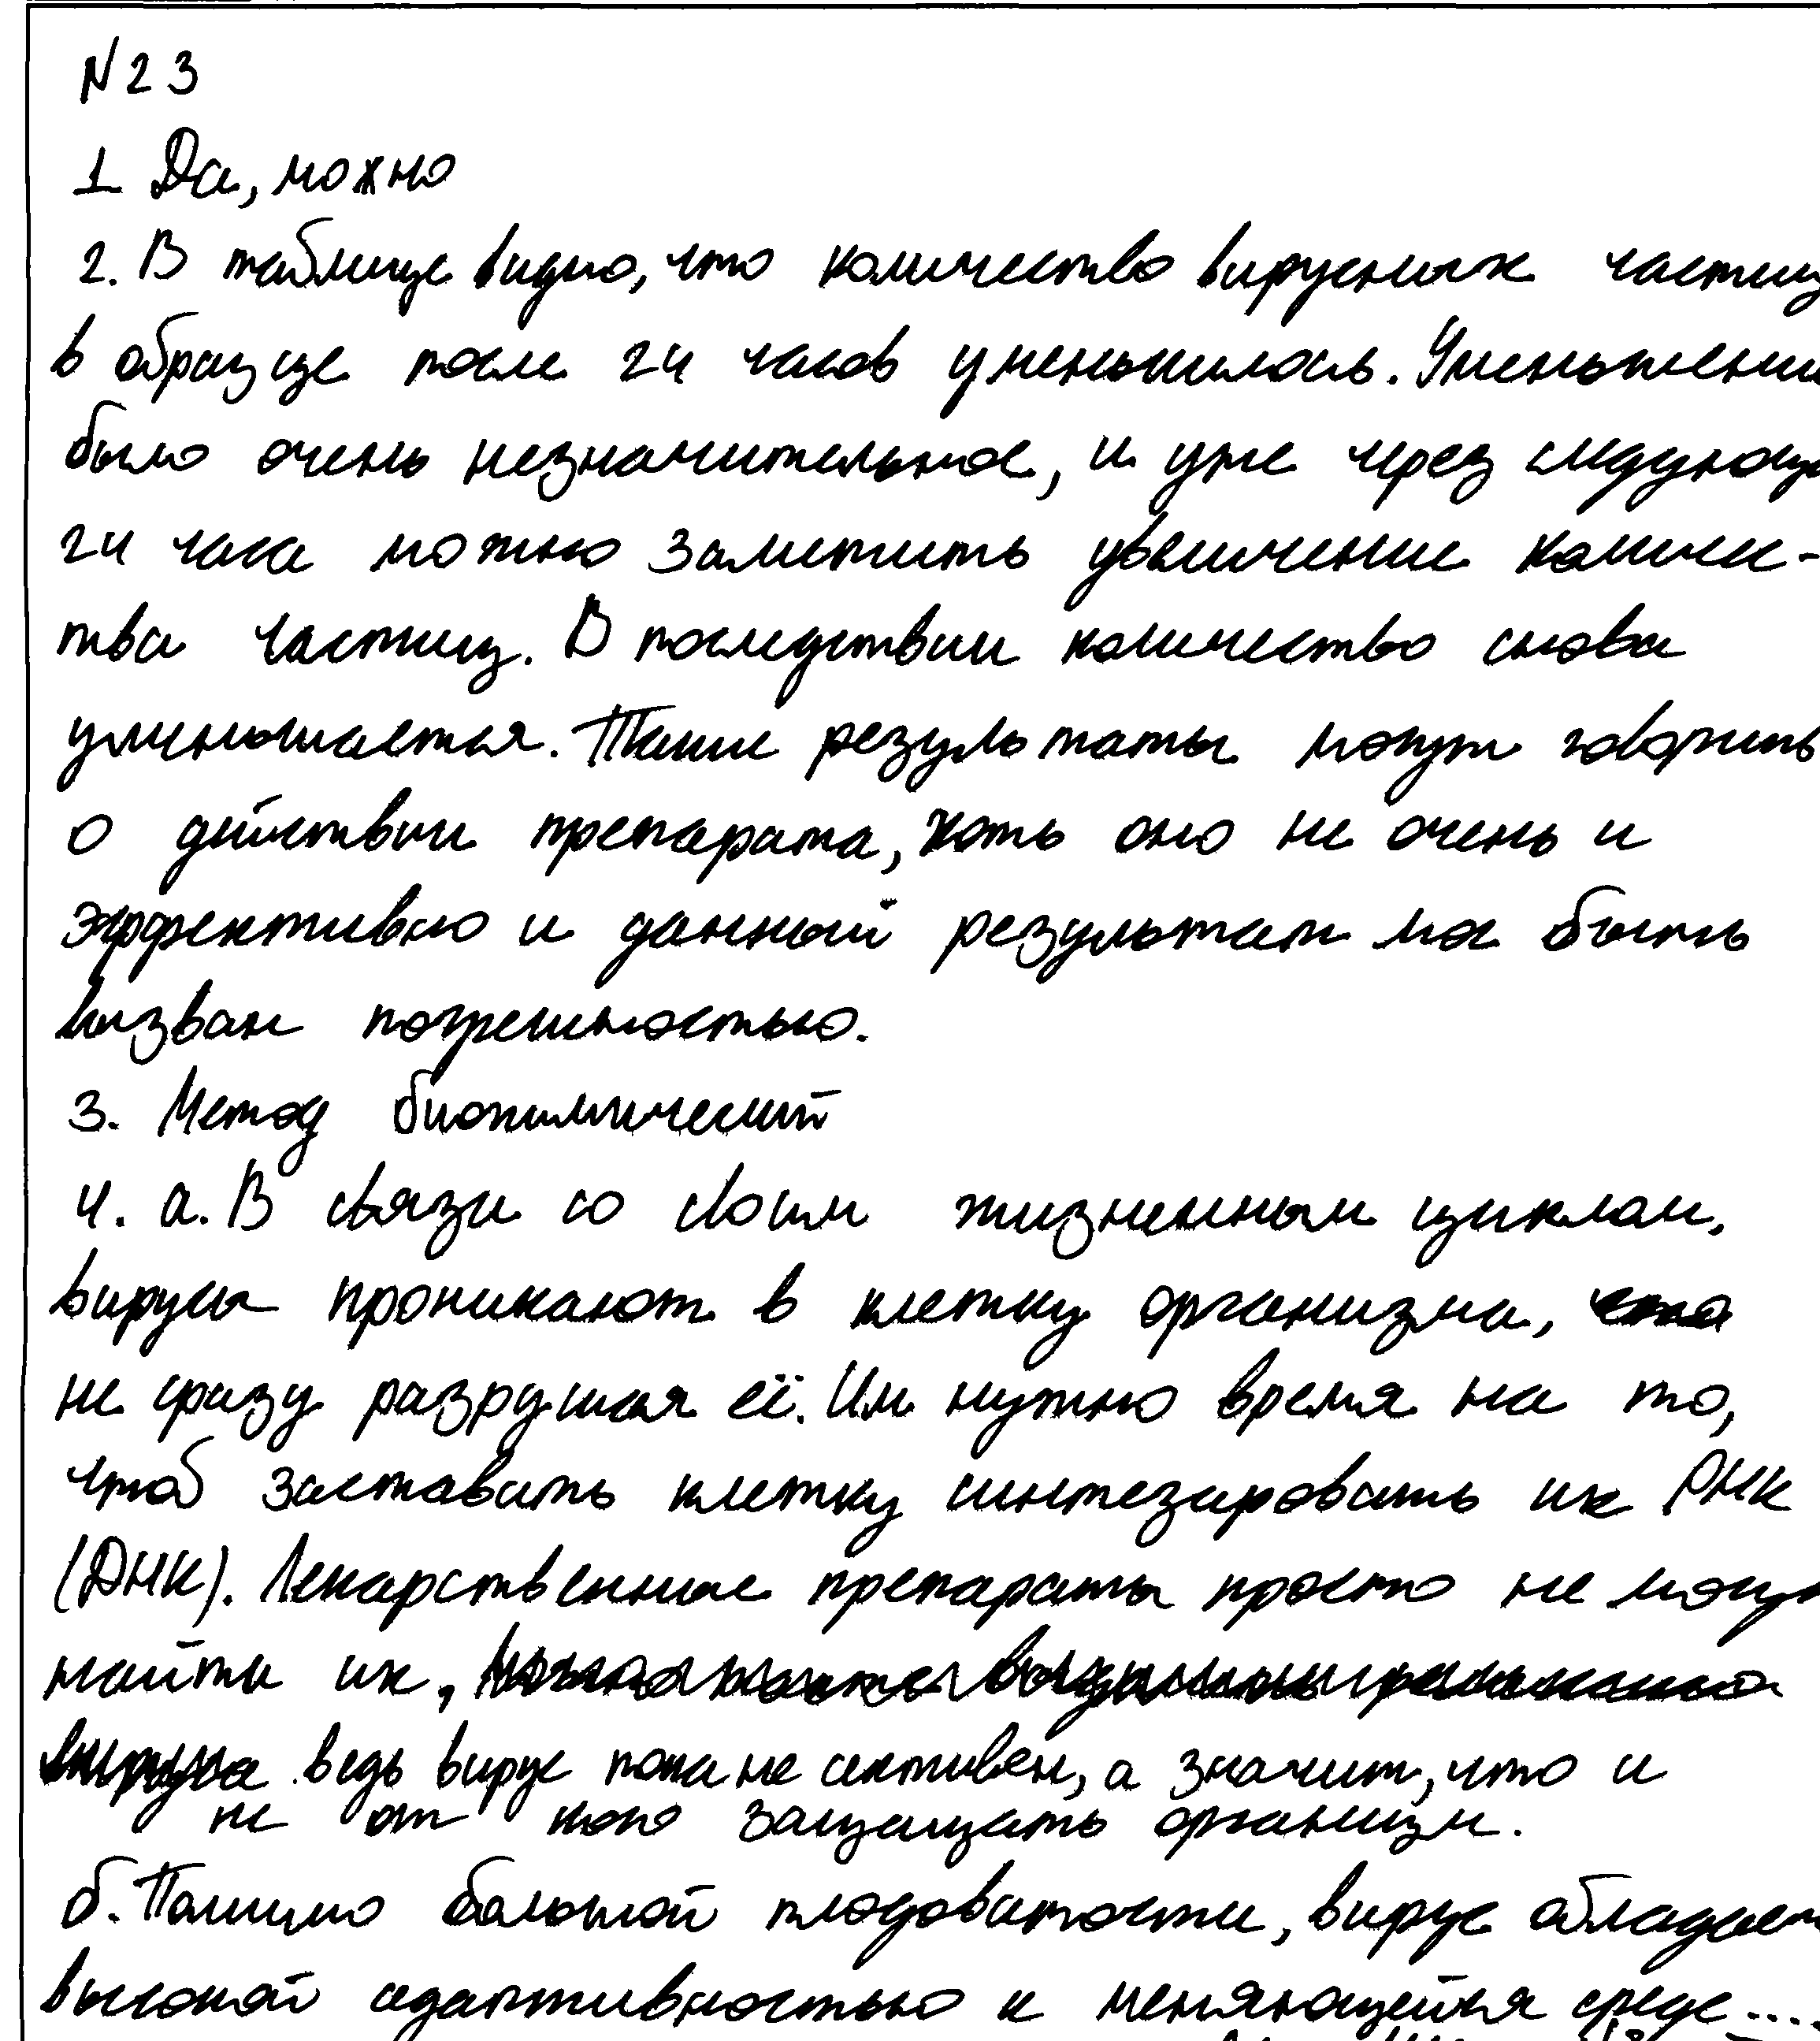 N23
1 Да, можно
2. В таблице видно, что количество вирусных частиц
в образце после 24 часов уменьшилось. Уменьшени
было очень незначительное, и уже через следующ
24 часа можно заметить увеличение количес-
тва частиц. В последствии количество снова
уменьшается. Такие результаты могут говорить
о действии препарата, хоть оно не очень и
эффективно и данный результат мог быть
вызван погрешностью.
3. Метод биохимический
4. а. В связи со своим жизненным циклом,
вирусы проникают в клетку организма,
не сразу разрушая её. Им нужно время на то,
чтоб заставить клетку синтезировать их РНК
(ДНК). Лекарственные препараты просто не могу
найти их,
ведь вирус пока не активен, а значит, что и
не от кого защищать организм.
б. Помимо большой плодовитости, вирус обладает
высокой адаптивностью к меняющейся среде...